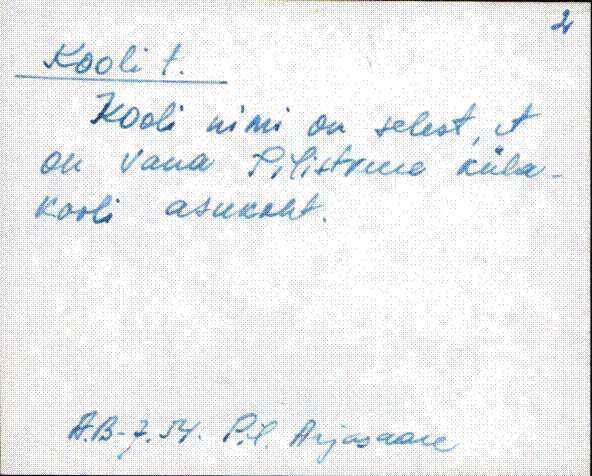 2
Kooli t.
Kooli nimi on selest, et
on vana Pilistvere küla-
kooli asukoht.
A.B-7.54. Pil. Arjasaare